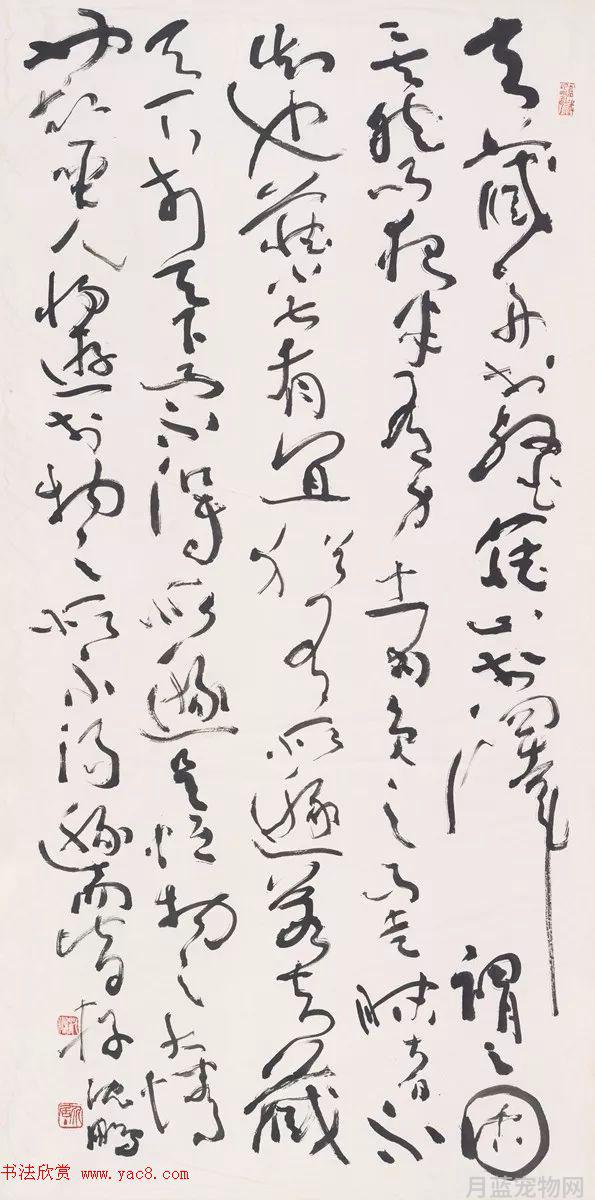 夫藏舟於壑藏山於澤謂之固
矣然而夜半有力者負之而走昧者不
知也藏小大有宜猶有所遯若夫藏
天下於天下而不得所遯是恆物之大情
也故聖人將遊於物之所不得遯而皆存
沈鵬
书法欣赏 www.yac8.com
月蓝宠物网